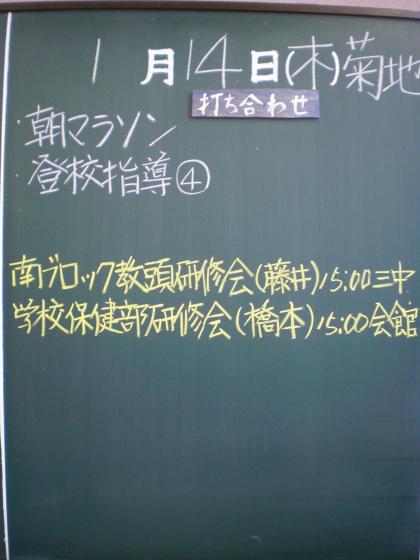 1月14日(木)菊地
打ち合わせ
・朝マラソン
・登校指導④
南ブロック教頭研修会(藤井)15:00三中
学校保健部研修会(橋本)15:00会館